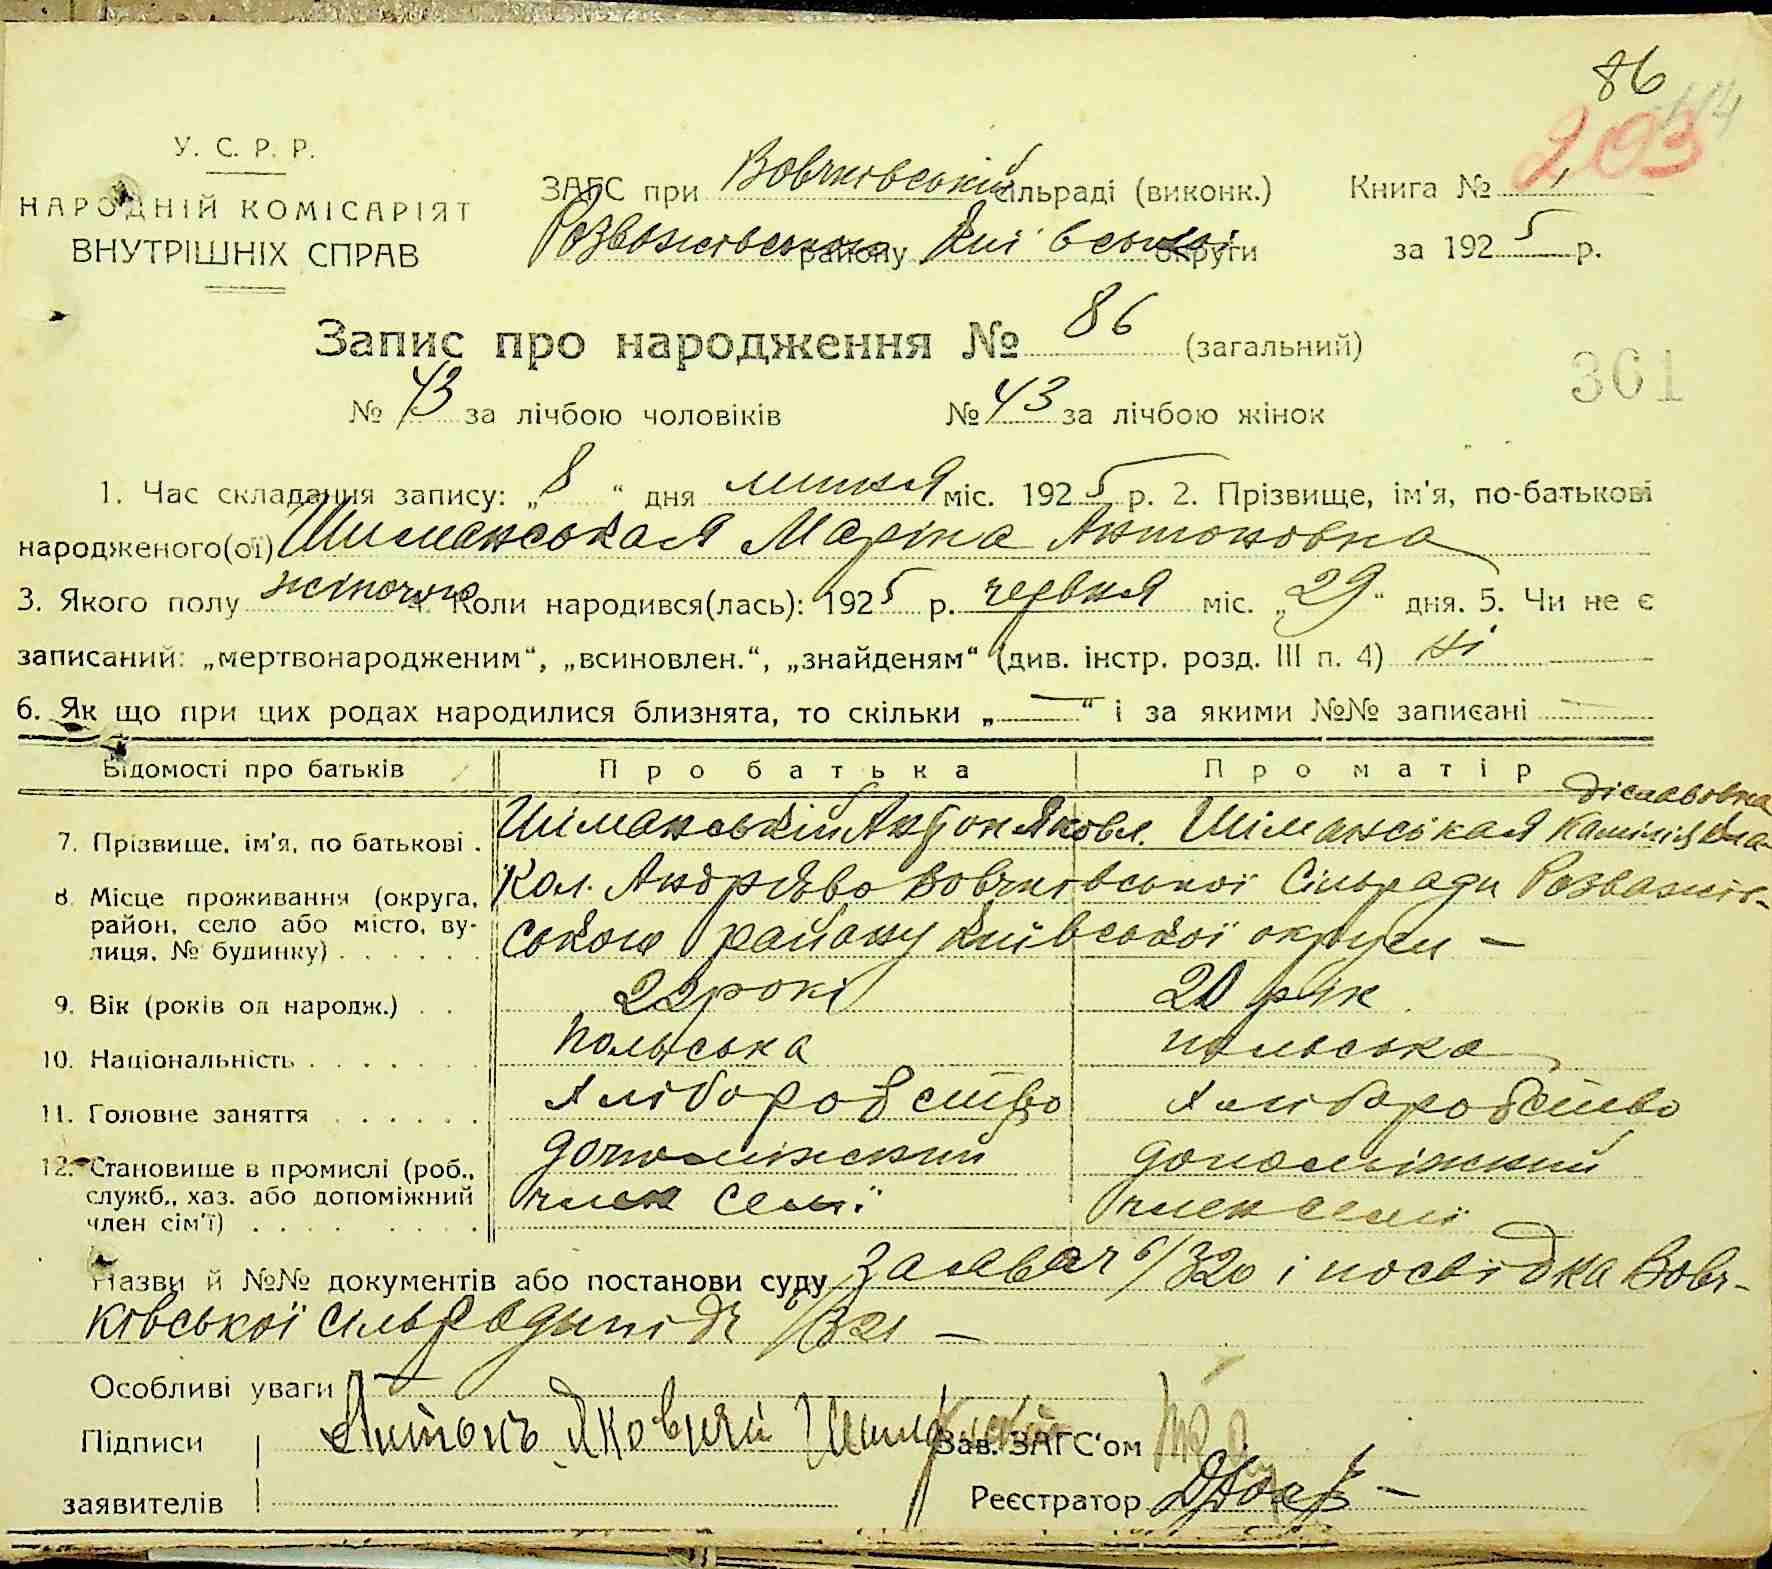 86
203
У. С. Р. Р.
НАРОДНІЙ КОМІСАРІЯТ
ВНУТРІШНІХ СПРАВ
ЗАГС при Вовчківській сільраді (виконк.) Книга № 1
Розважівського району Київської округи за 1925 р.
Запис про народження № 86 (загальний)
361
№ 43 за лічбою чоловіків № 43 за лічбою жінок
1. Час складання запису: „8“ дня липня міс. 1925 р. 2. Прізвище, ім'я, по-батькові
народженого(ої) Шиманськая Маріна Антоновна
3. Якого полу жіночого 4. Коли народився(лась): 1925 р. червня міс. „29“ дня. 5. Чи не є
записаний: „мертвонародженим“, „всиновлен.“, „знайденям“ (див. інстр. розд. III п. 4) ні
6. Як що при цих родах народилися близнята, то скільки „—“ і за якими №№ записані —
Відомості про батьків Про батька Про матір
7. Прізвище, ім'я, по батькові . Шіманський Антон Яковл. Шіманськая
8. Місце проживання (округа, Кол. Андрієво Вовчківської Сільради Розважів-
район, село або місто, ву- ського району Київської округи —
лиця, № будинку) . . . . . .
9. Вік (років од народж.) . . 22 рокі 20 рік
10. Національність . . . . . . . польська польська
11. Головне заняття . . . . . . хліборобство хліборобство
12. Становище в промислі (роб., допоміжний допоміжний
служб., хаз. або допоміжний член семї член семї
член сім'ї) . . . . . . . .
Назви й №№ документів або постанови суду Заява ч 6/320 і посвідка Вовч-
ківської сільради під ч /321 —
Особливі уваги —
Підписи Антонъ Яковлий Зав. ЗАГС'ом
заявителів Реєстратор